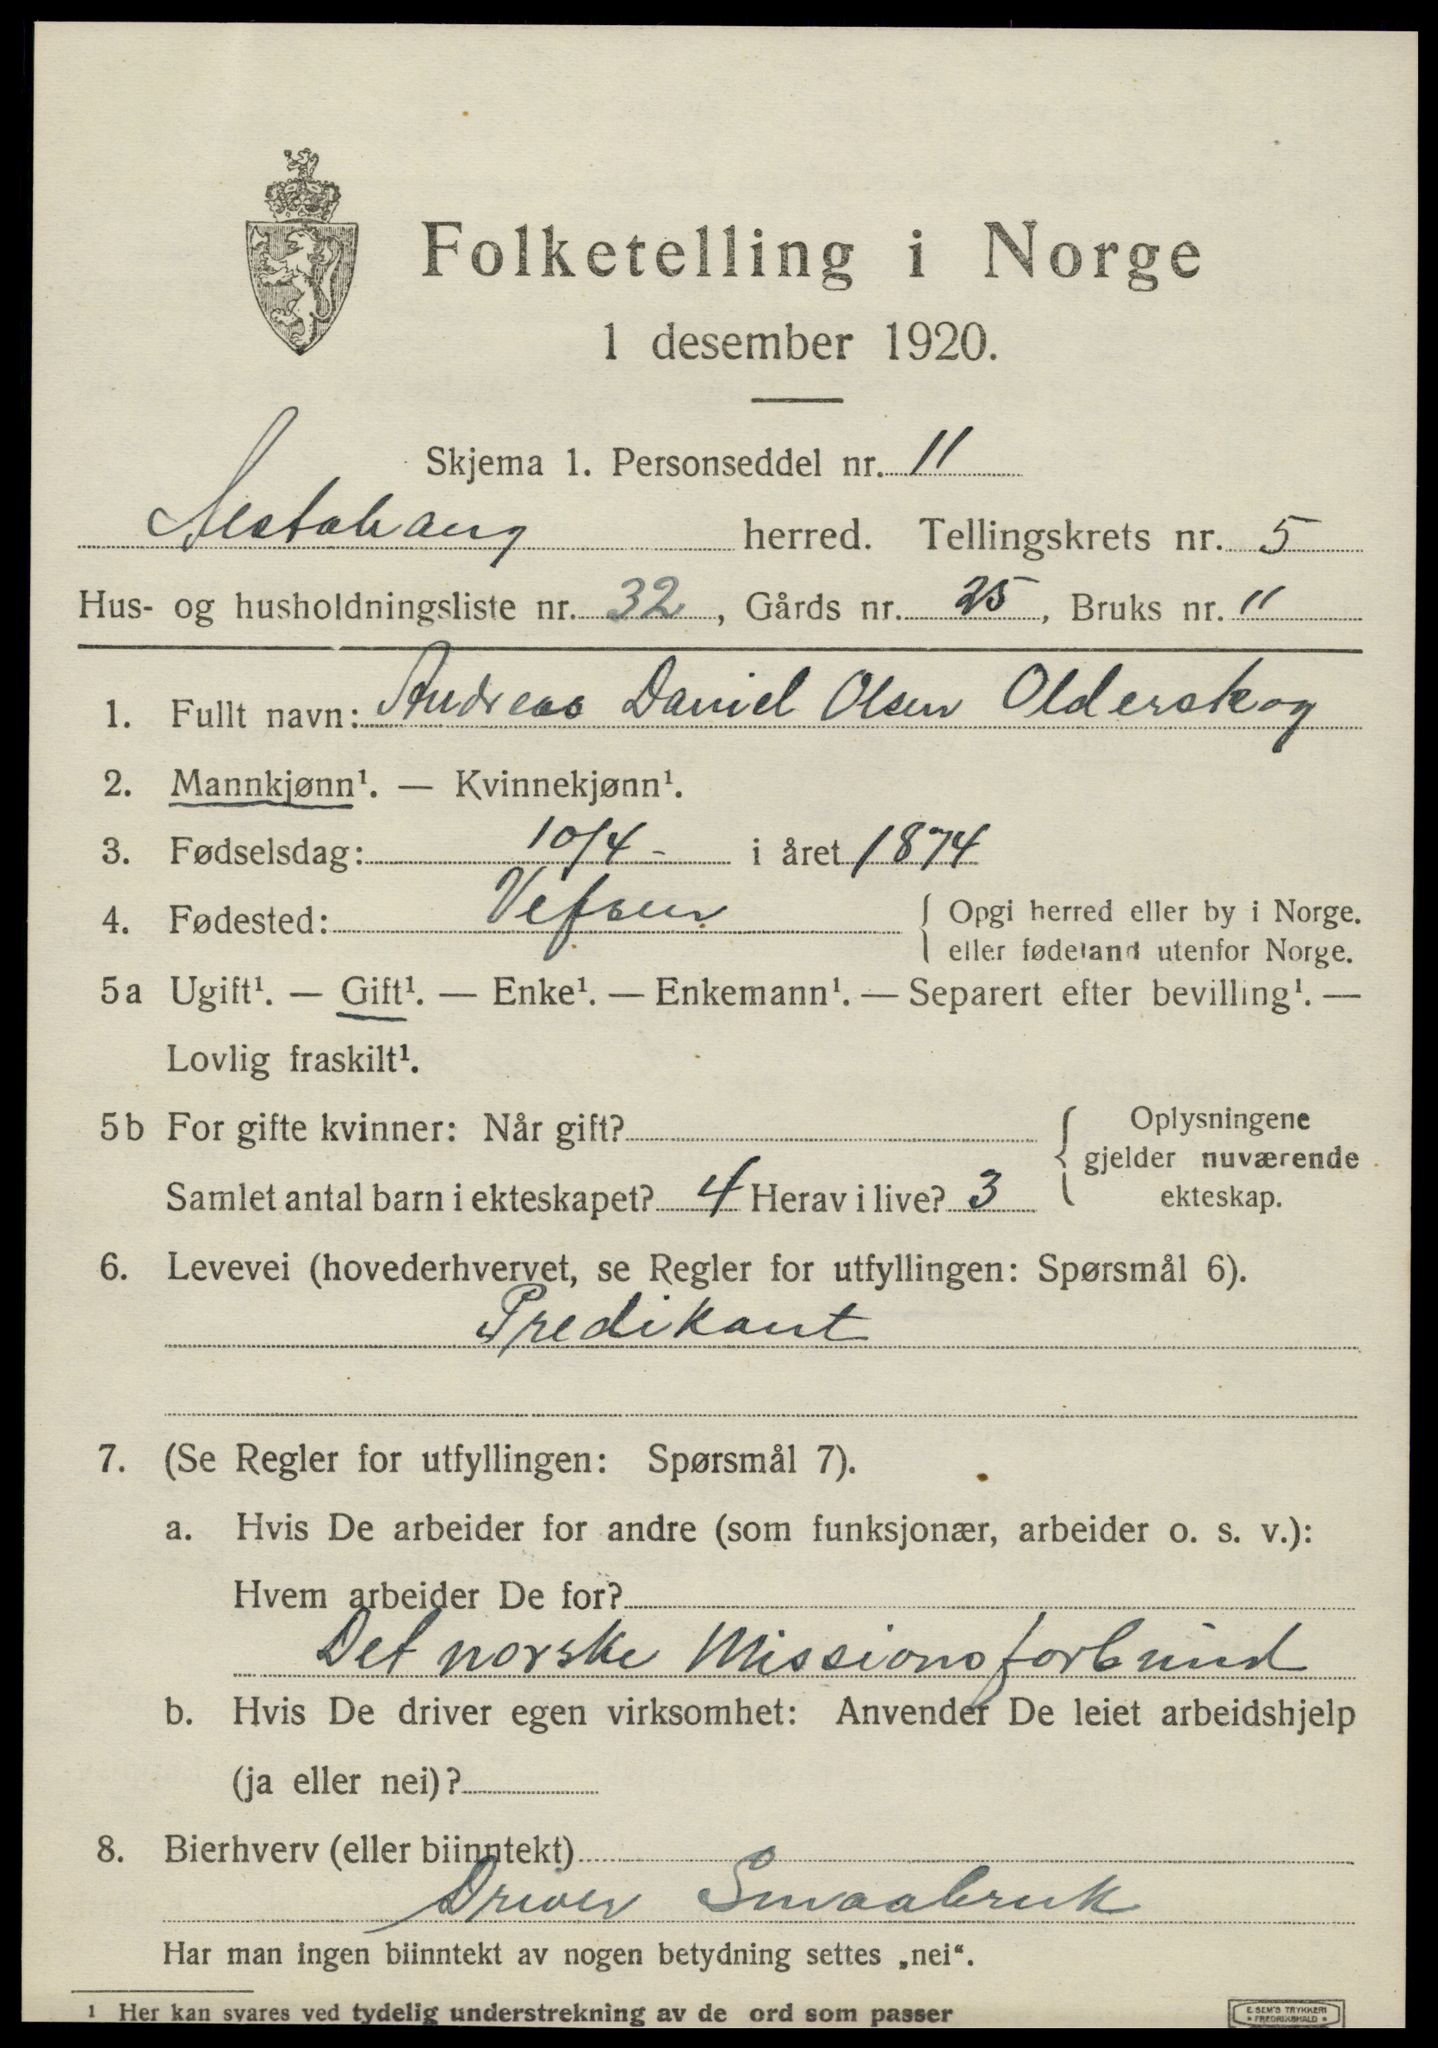 Folketelling i Norge
1 desember 1920.
Skjema 1. Personseddel nr. 11
Alstahaug herred. Tellingskrets nr. 5
Hus- og husholdningsliste nr. 32, Gårds nr. 25, Bruks nr. 11
1. Fullt navn: Andreas Daniel Olsen Olderskog
2. Mannkjønn¹. — Kvinnekjønn¹.
3. Fødselsdag: 10/4 - i året 1874
4. Fødested: Vefsen { Opgi herred eller by i Norge.
eller fødeland utenfor Norge.
5a Ugift¹. — Gift¹. — Enke¹. — Enkemann¹. — Separert efter bevilling¹. —
Lovlig fraskilt¹.
5b For gifte kvinner: Når gift? { Oplysningene
gjelder nuværende
Samlet antal barn i ekteskapet? 4 Herav i live? 3 ekteskap.
6. Levevei (hovederhvervet, se Regler for utfyllingen: Spørsmål 6).
Predikant
7. (Se Regler for utfyllingen: Spørsmål 7).
a. Hvis De arbeider for andre (som funksjonær, arbeider o. s. v.):
Hvem arbeider De for?
Det norske Missionsforbund
b. Hvis De driver egen virksomhet: Anvender De leiet arbeidshjelp
(ja eller nei)?
8. Bierhverv (eller biinntekt)
Driver Smaabruk
Har man ingen biinntekt av nogen betydning settes „nei“.
¹ Her kan svares ved tydelig understrekning av de ord som passer
E. SEM'S TRYKKERI
* FREDRIKSHALD *